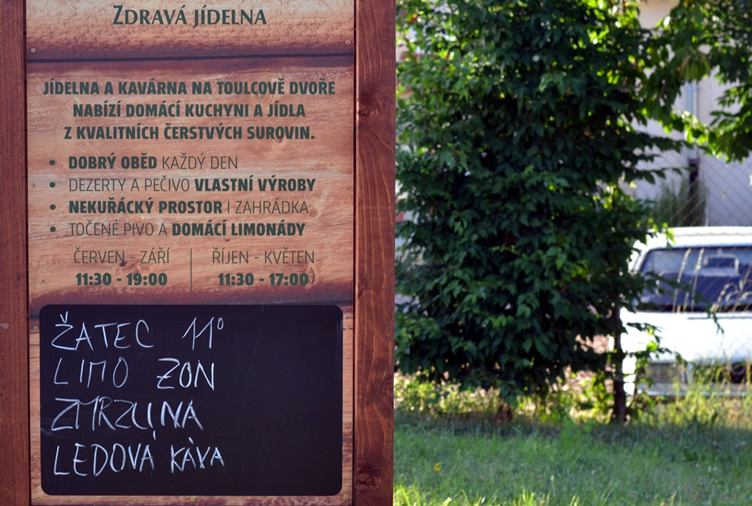 ZDRAVÁ JÍDELNA
JÍDELNA A KAVÁRNA NA TOULCOVĚ DVOŘE
NABÍZÍ DOMÁCÍ KUCHYNI A JÍDLA
Z KVALITNÍCH ČERSTVÝCH SUROVIN.
• DOBRÝ OBĚD KAŽDÝ DEN
• DEZERTY A PEČIVO VLASTNÍ VÝROBY
• NEKUŘÁCKÝ PROSTOR I ZAHRÁDKA
• TOČENÉ PIVO A DOMÁCÍ LIMONÁDY
ČERVEN - ZÁŘÍ | ŘÍJEN - KVĚTEN
11:30 - 19:00 | 11:30 - 17:00
ŽATEC 11°
LIMO ZON
ZMRZLINA
LEDOVÁ KÁVA